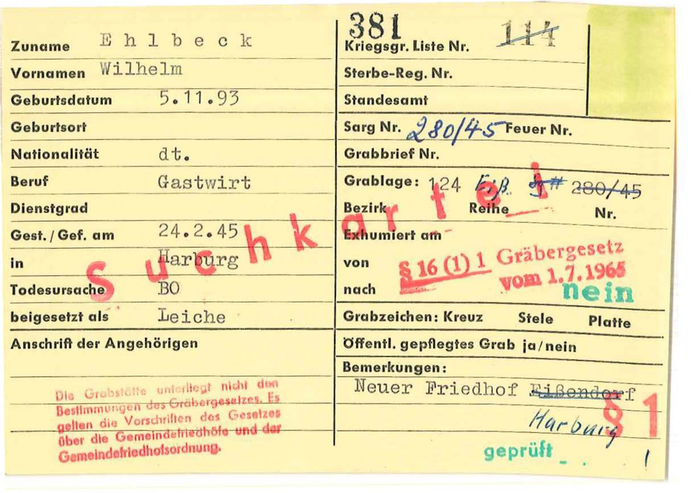 Zuname Ehlbeck
Vornamen Wilhelm
Geburtsdatum 5.11.93
Geburtsort
Nationalität dt.
Beruf Gastwirt
Dienstgrad
Gest. / Gef. am 24.2.45
in Harburg
Todesursache BO
beigesetzt als Leiche
Anschrift der Angehörigen
Die Grabstätte unterliegt nicht den
Bestimmungen des Gräbergesetzes. Es
gelten die Vorschriften des Gesetzes
über die Gemeindefriedhöfe und der
Gemeindefriedhofsordnung.
Suchkartei
381 114
Kriegsgr. Liste Nr.
Sterbe-Reg. Nr.
Standesamt
Sarg Nr. 280/45 Feuer Nr.
Grabbrief Nr.
Grablage: 124 280/45
Bezirk Reihe Nr.
Exhumiert am
von
nach
§ 16 (1) 1 Gräbergesetz
vom 1.7.1965
nein
Grabzeichen: Kreuz Stele Platte
Öffentl. gepflegtes Grab ja/nein
Bemerkungen:
Neuer Friedhof Eißendorf
Harburg
§ 1
geprüft